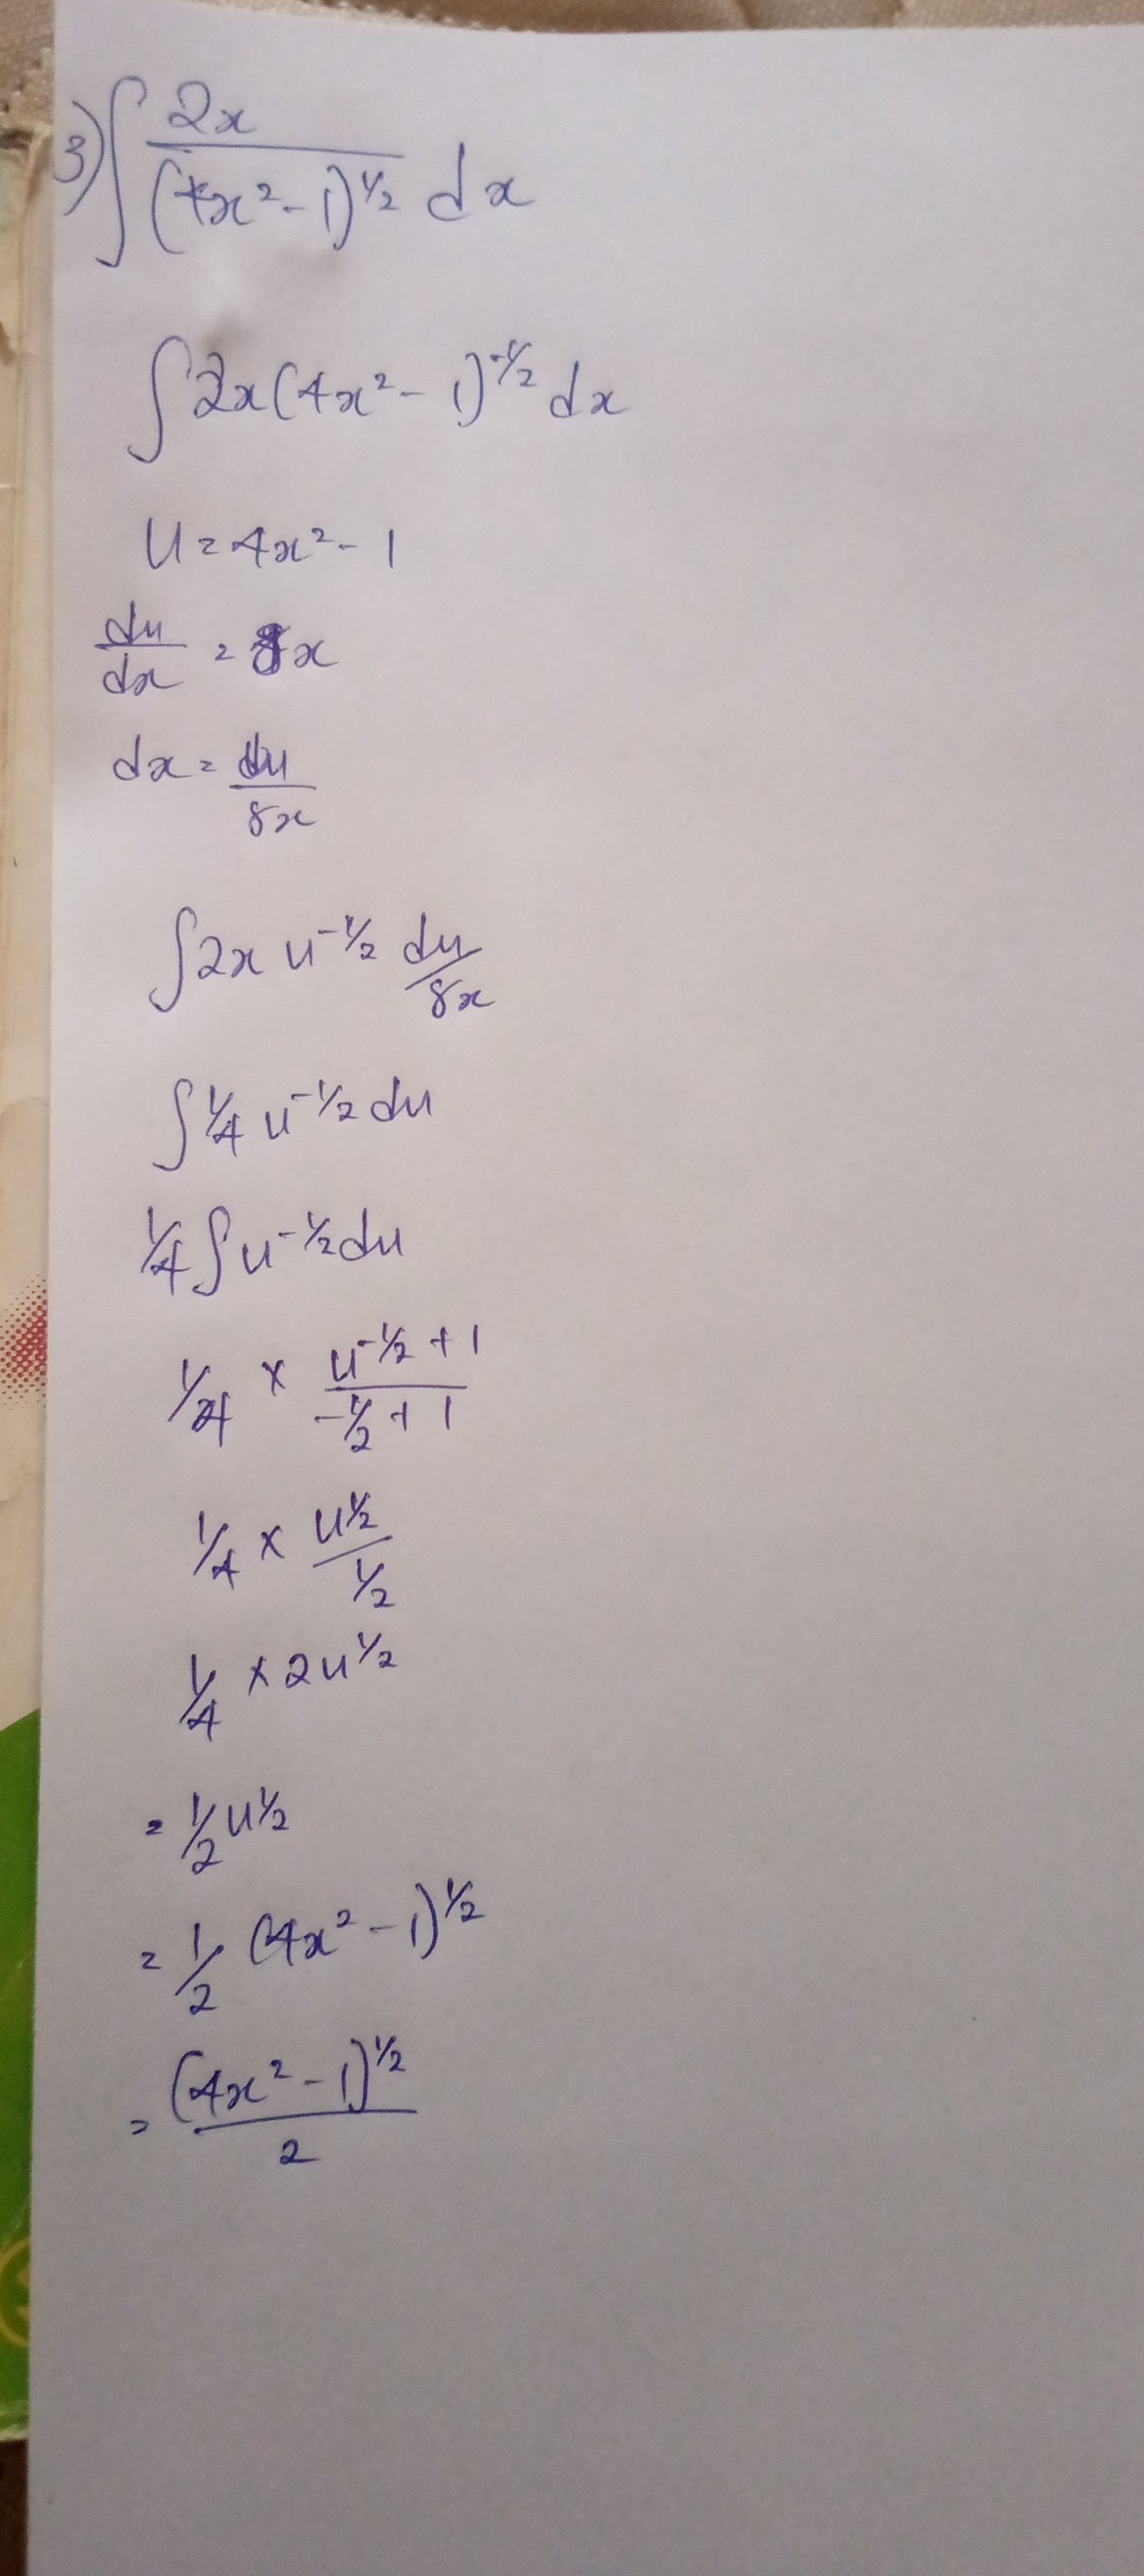 3) ∫ 2x / (4x² - 1)^½ dx
∫ 2x (4x² - 1)^-½ dx
U = 4x² - 1
du/dx = 8x
dx = du/8x
∫ 2x u^-½ du/8x
∫ ¼ u^-½ du
¼ ∫ u^-½ du
¼ × u^-½ + 1 / -½ + 1
¼ × u^½ / ½
¼ × 2u^½
= ½ u^½
= ½ (4x² - 1)^½
= (4x² - 1)^½ / 2